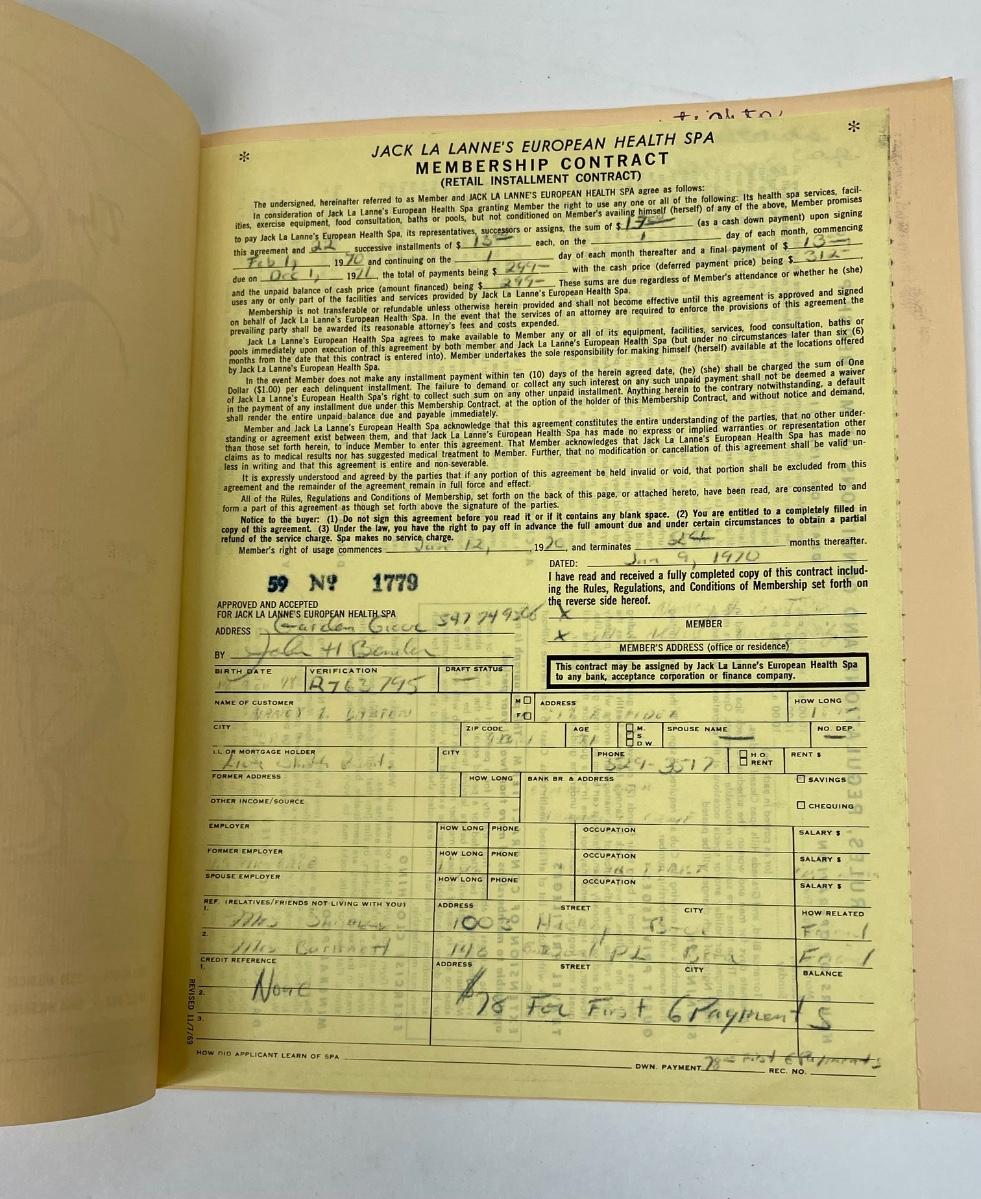 * JACK LA LANNE'S EUROPEAN HEALTH SPA *
MEMBERSHIP CONTRACT
(RETAIL INSTALLMENT CONTRACT)
The undersigned, hereinafter referred to as Member and JACK LA LANNE'S EUROPEAN HEALTH SPA agree as follows:
In consideration of Jack La Lanne's European Health Spa granting Member the right to use any one or all of the following: Its health spa services, facil-
ities, exercise equipment, food consultation, baths or pools, but not conditioned on Member's availing himself (herself) of any of the above, Member promises
to pay Jack La Lanne's European Health Spa, its representatives, successors or assigns, the sum of $ (as a cash down payment) upon signing
this agreement and 22 successive installments of $ 13 each, on the 1 day of each month, commencing
Feb 1, 1970 and continuing on the 1 day of each month thereafter and a final payment of $ 13
due on Dec 1, 1971 the total of payments being $ 299- with the cash price (deferred payment price) being $ 312-
and the unpaid balance of cash price (amount financed) being $ 299- These sums are due regardless of Member's attendance or whether he (she)
uses any or only part of the facilities and services provided by Jack La Lanne's European Health Spa.
Membership is not transferable or refundable unless otherwise herein provided and shall not become effective until this agreement is approved and signed
on behalf of Jack La Lanne's European Health Spa. In the event that the services of an attorney are required to enforce the provisions of this agreement the
prevailing party shall be awarded its reasonable attorney's fees and costs expended.
Jack La Lanne's European Health Spa agrees to make available to Member any or all of its equipment, facilities, services, food consultation, baths or
pools immediately upon execution of this agreement by both member and Jack La Lanne's European Health Spa (but under no circumstances later than six (6)
months from the date that this contract is entered into). Member undertakes the sole responsibility for making himself (herself) available at the locations offered
by Jack La Lanne's European Health Spa.
In the event Member does not make any installment payment within ten (10) days of the herein agreed date, (he) (she) shall be charged the sum of One
Dollar ($1.00) per each delinquent installment. The failure to demand or collect any such interest on any such unpaid payment shall not be deemed a waiver
of Jack La Lanne's European Health Spa's right to collect such sum on any other unpaid installment. Anything herein to the contrary notwithstanding, a default
in the payment of any installment due under this Membership Contract, at the option of the holder of this Membership Contract, and without notice and demand,
shall render the entire unpaid balance due and payable immediately.
Member and Jack La Lanne's European Health Spa acknowledge that this agreement constitutes the entire understanding of the parties, that no other under-
standing or agreement exist between them, and that Jack La Lanne's European Health Spa has made no express or implied warranties or representation other
than those set forth herein, to induce Member to enter this agreement. That Member acknowledges that Jack La Lanne's European Health Spa has made no
claims as to medical results nor has suggested medical treatment to Member. Further, that no modification or cancellation of this agreement shall be valid un-
less in writing and that this agreement is entire and non-severable.
It is expressly understood and agreed by the parties that if any portion of this agreement be held invalid or void, that portion shall be excluded from this
agreement and the remainder of the agreement remain in full force and effect.
All of the Rules, Regulations and Conditions of Membership, set forth on the back of this page, or attached hereto, have been read, are consented to and
form a part of this agreement as though set forth above the signature of the parties.
Notice to the buyer: (1) Do not sign this agreement before you read it or if it contains any blank space. (2) You are entitled to a completely filled in
copy of this agreement. (3) Under the law, you have the right to pay off in advance the full amount due and under certain circumstances to obtain a partial
refund of the service charge. Spa makes no service charge.
Member's right of usage commences Jan 12, 1970, and terminates months thereafter.
DATED: Jan 9, 1970
59 Nº 1779
I have read and received a fully completed copy of this contract includ-
ing the Rules, Regulations, and Conditions of Membership set forth on
the reverse side hereof.
APPROVED AND ACCEPTED
FOR JACK LA LANNE'S EUROPEAN HEALTH SPA
x
MEMBER
ADDRESS Garden Grove
x
MEMBER'S ADDRESS (office or residence)
BY John H
This contract may be assigned by Jack La Lanne's European Health Spa
to any bank, acceptance corporation or finance company.
BIRTH DATE VERIFICATION R763795 DRAFT STATUS
NAME OF CUSTOMER M F ADDRESS HOW LONG
CITY ZIP CODE AGE M. S. D W SPOUSE NAME NO. DEP.
I.L OR MORTGAGE HOLDER CITY PHONE 529-3517 H.O. RENT RENT $
FORMER ADDRESS HOW LONG BANK BR. & ADDRESS SAVINGS
OTHER INCOME/SOURCE CHEQUING
EMPLOYER HOW LONG PHONE OCCUPATION SALARY $
FORMER EMPLOYER HOW LONG PHONE OCCUPATION SALARY $
SPOUSE EMPLOYER HOW LONG PHONE OCCUPATION SALARY $
REF. (RELATIVES/FRIENDS NOT LIVING WITH YOU) ADDRESS STREET CITY HOW RELATED
1. Mrs 1003
2. Mrs
CREDIT REFERENCE ADDRESS STREET CITY BALANCE
1. None
2. $78 For First 6 Payments
3.
REVISED 11/7/69
HOW DID APPLICANT LEARN OF SPA DWN. PAYMENT 78 First 6 Payments REC. NO.